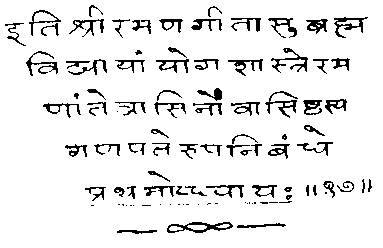 इति श्रीरमणगीतासु ब्रह्म
विद्यायां योगशास्त्रे रम
णांतेवासिनौ वासिष्टस्य
गणपतेरुपनिबंधे
प्रथमोध्यायः ॥१७॥